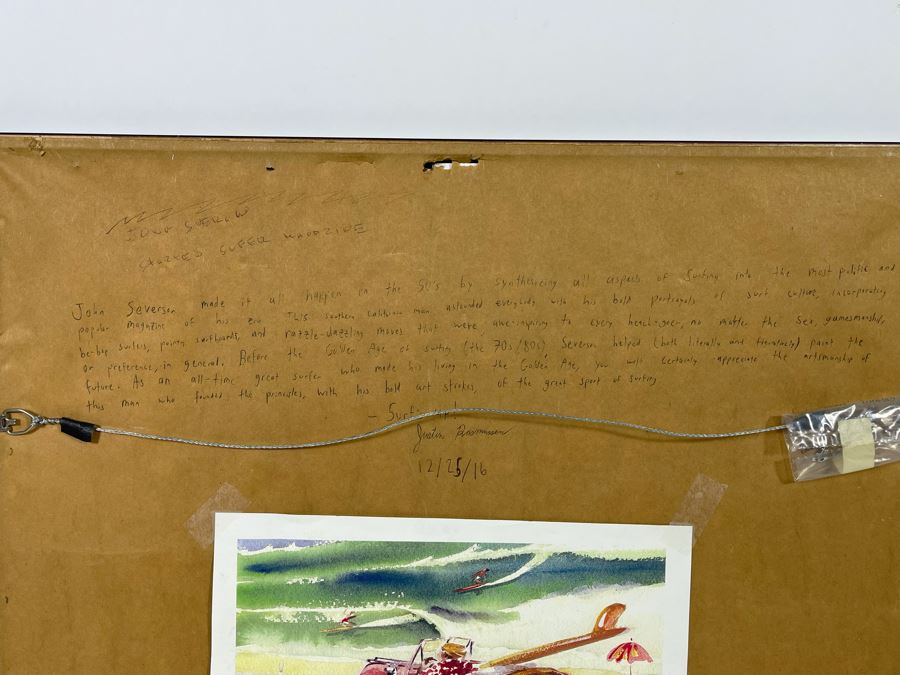 JOHN SEVERSON
STARTED SURFER MAGAZINE
John Severson made it all happen in the 50's by synthesizing all aspects of surfing into the most politic and
popular magazine of his era. This southern California man astounded everybody with his bold portrayals of surf culture, incorporating
be-bop surfers, pointy surfboards, and razzle-dazzling moves that were awe-inspiring to every beach-goer, no matter the sex, gamesmanship,
or preference, in general. Before the Golden Age of surfing (the 70s/80s) Severson helped (both literally and figuratively) paint the
future. As an all-time great surfer who made his living in the Golden Age, you will certainly appreciate the artsmanship of
this man who founded the principles, with his bold art strokes, of the great sport of surfing
Justin Rasmussen
12/25/16